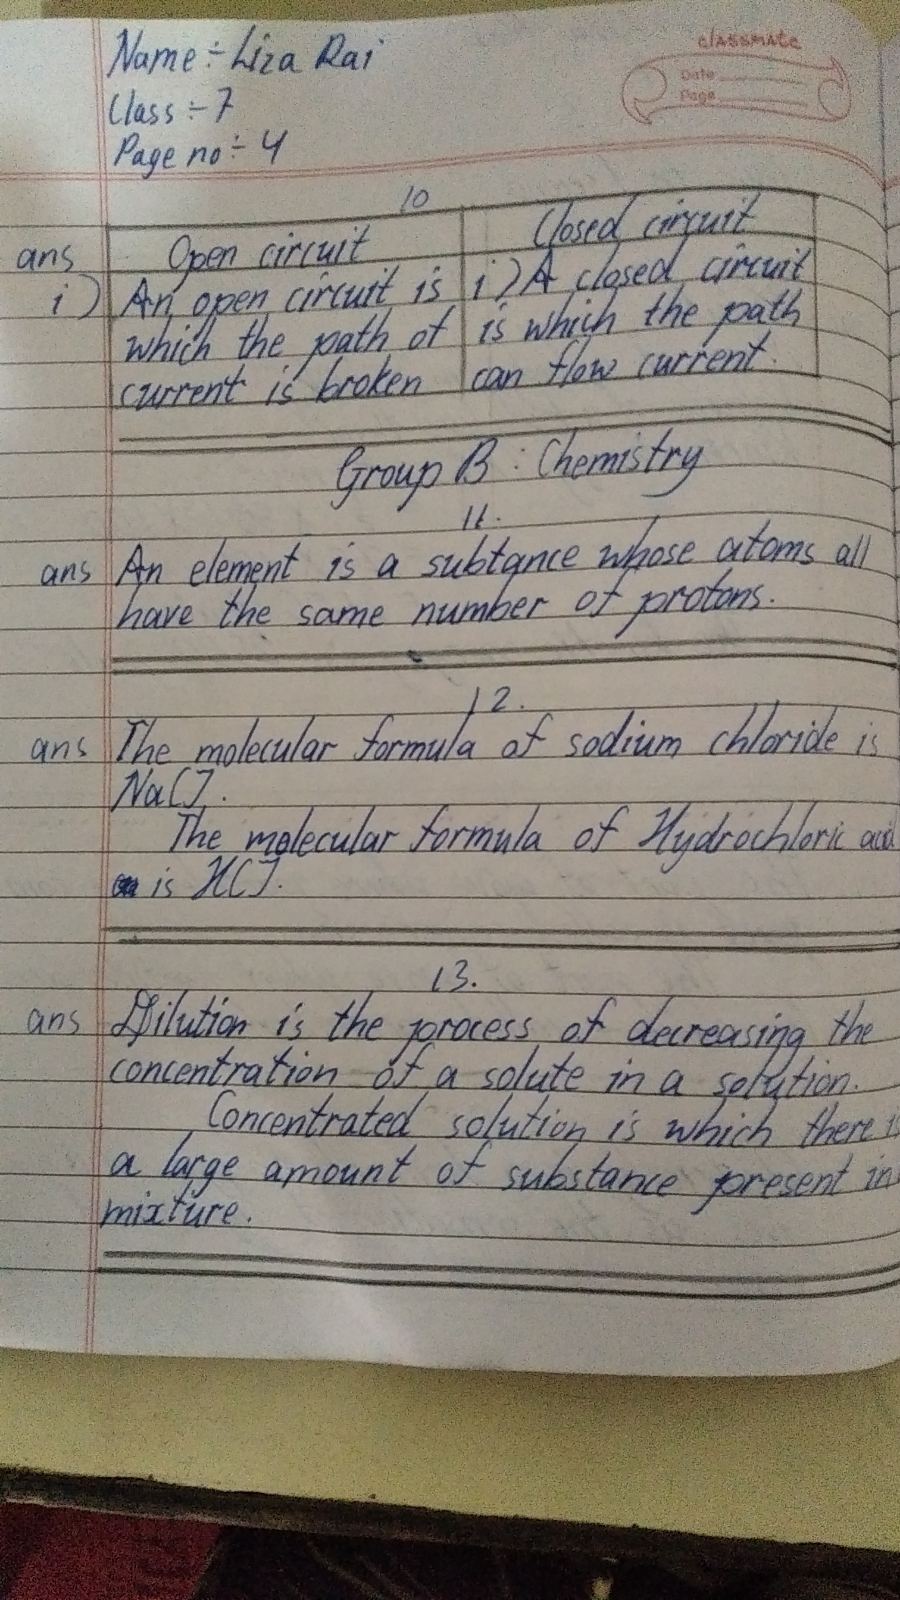 Name÷Liza Rai
Class÷7
Page no÷4
classmate
Date
Page
10
ans
Open circuit
Closed circuit
i) An open circuit is
which the path of
current is broken
i) A closed circuit
is which the path
can flow current.
Group B : Chemistry
11.
ans An element is a subtance whose atoms all
have the same number of protons.
12.
ans The molecular formula of sodium chloride is
NaCl.
The molecular formula of Hydrochloric acid
is HCl.
13.
ans Dilution is the process of decreasing the
concentration of a solute in a solution.
Concentrated solution is which there is
a large amount of substance present in
mixture.